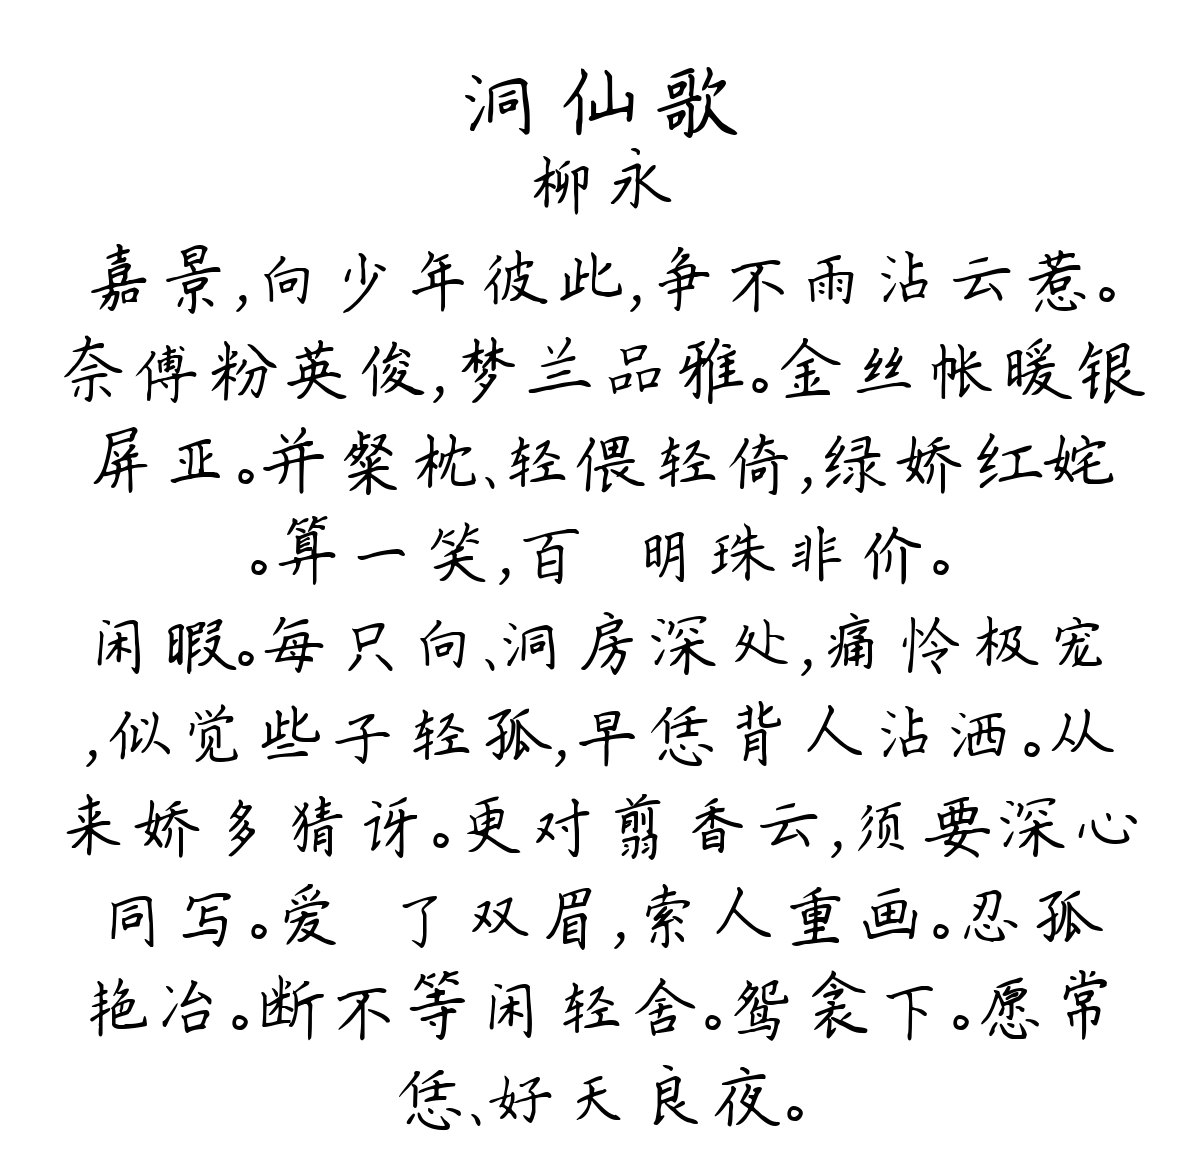 洞仙歌
柳永
嘉景,向少年彼此,争不雨沾云惹。
奈傅粉英俊,梦兰品雅。金丝帐暖银
屏亚。并粲枕、轻偎轻倚,绿娇红姹
。算一笑,百 明珠非价。
闲暇。每只向、洞房深处,痛怜极宠
,似觉些子轻孤,早恁背人沾洒。从
来娇多猜讶。更对翦香云,须要深心
同写。爱 了双眉,索人重画。忍孤
艳冶。断不等闲轻舍。鸳衾下。愿常
恁、好天良夜。